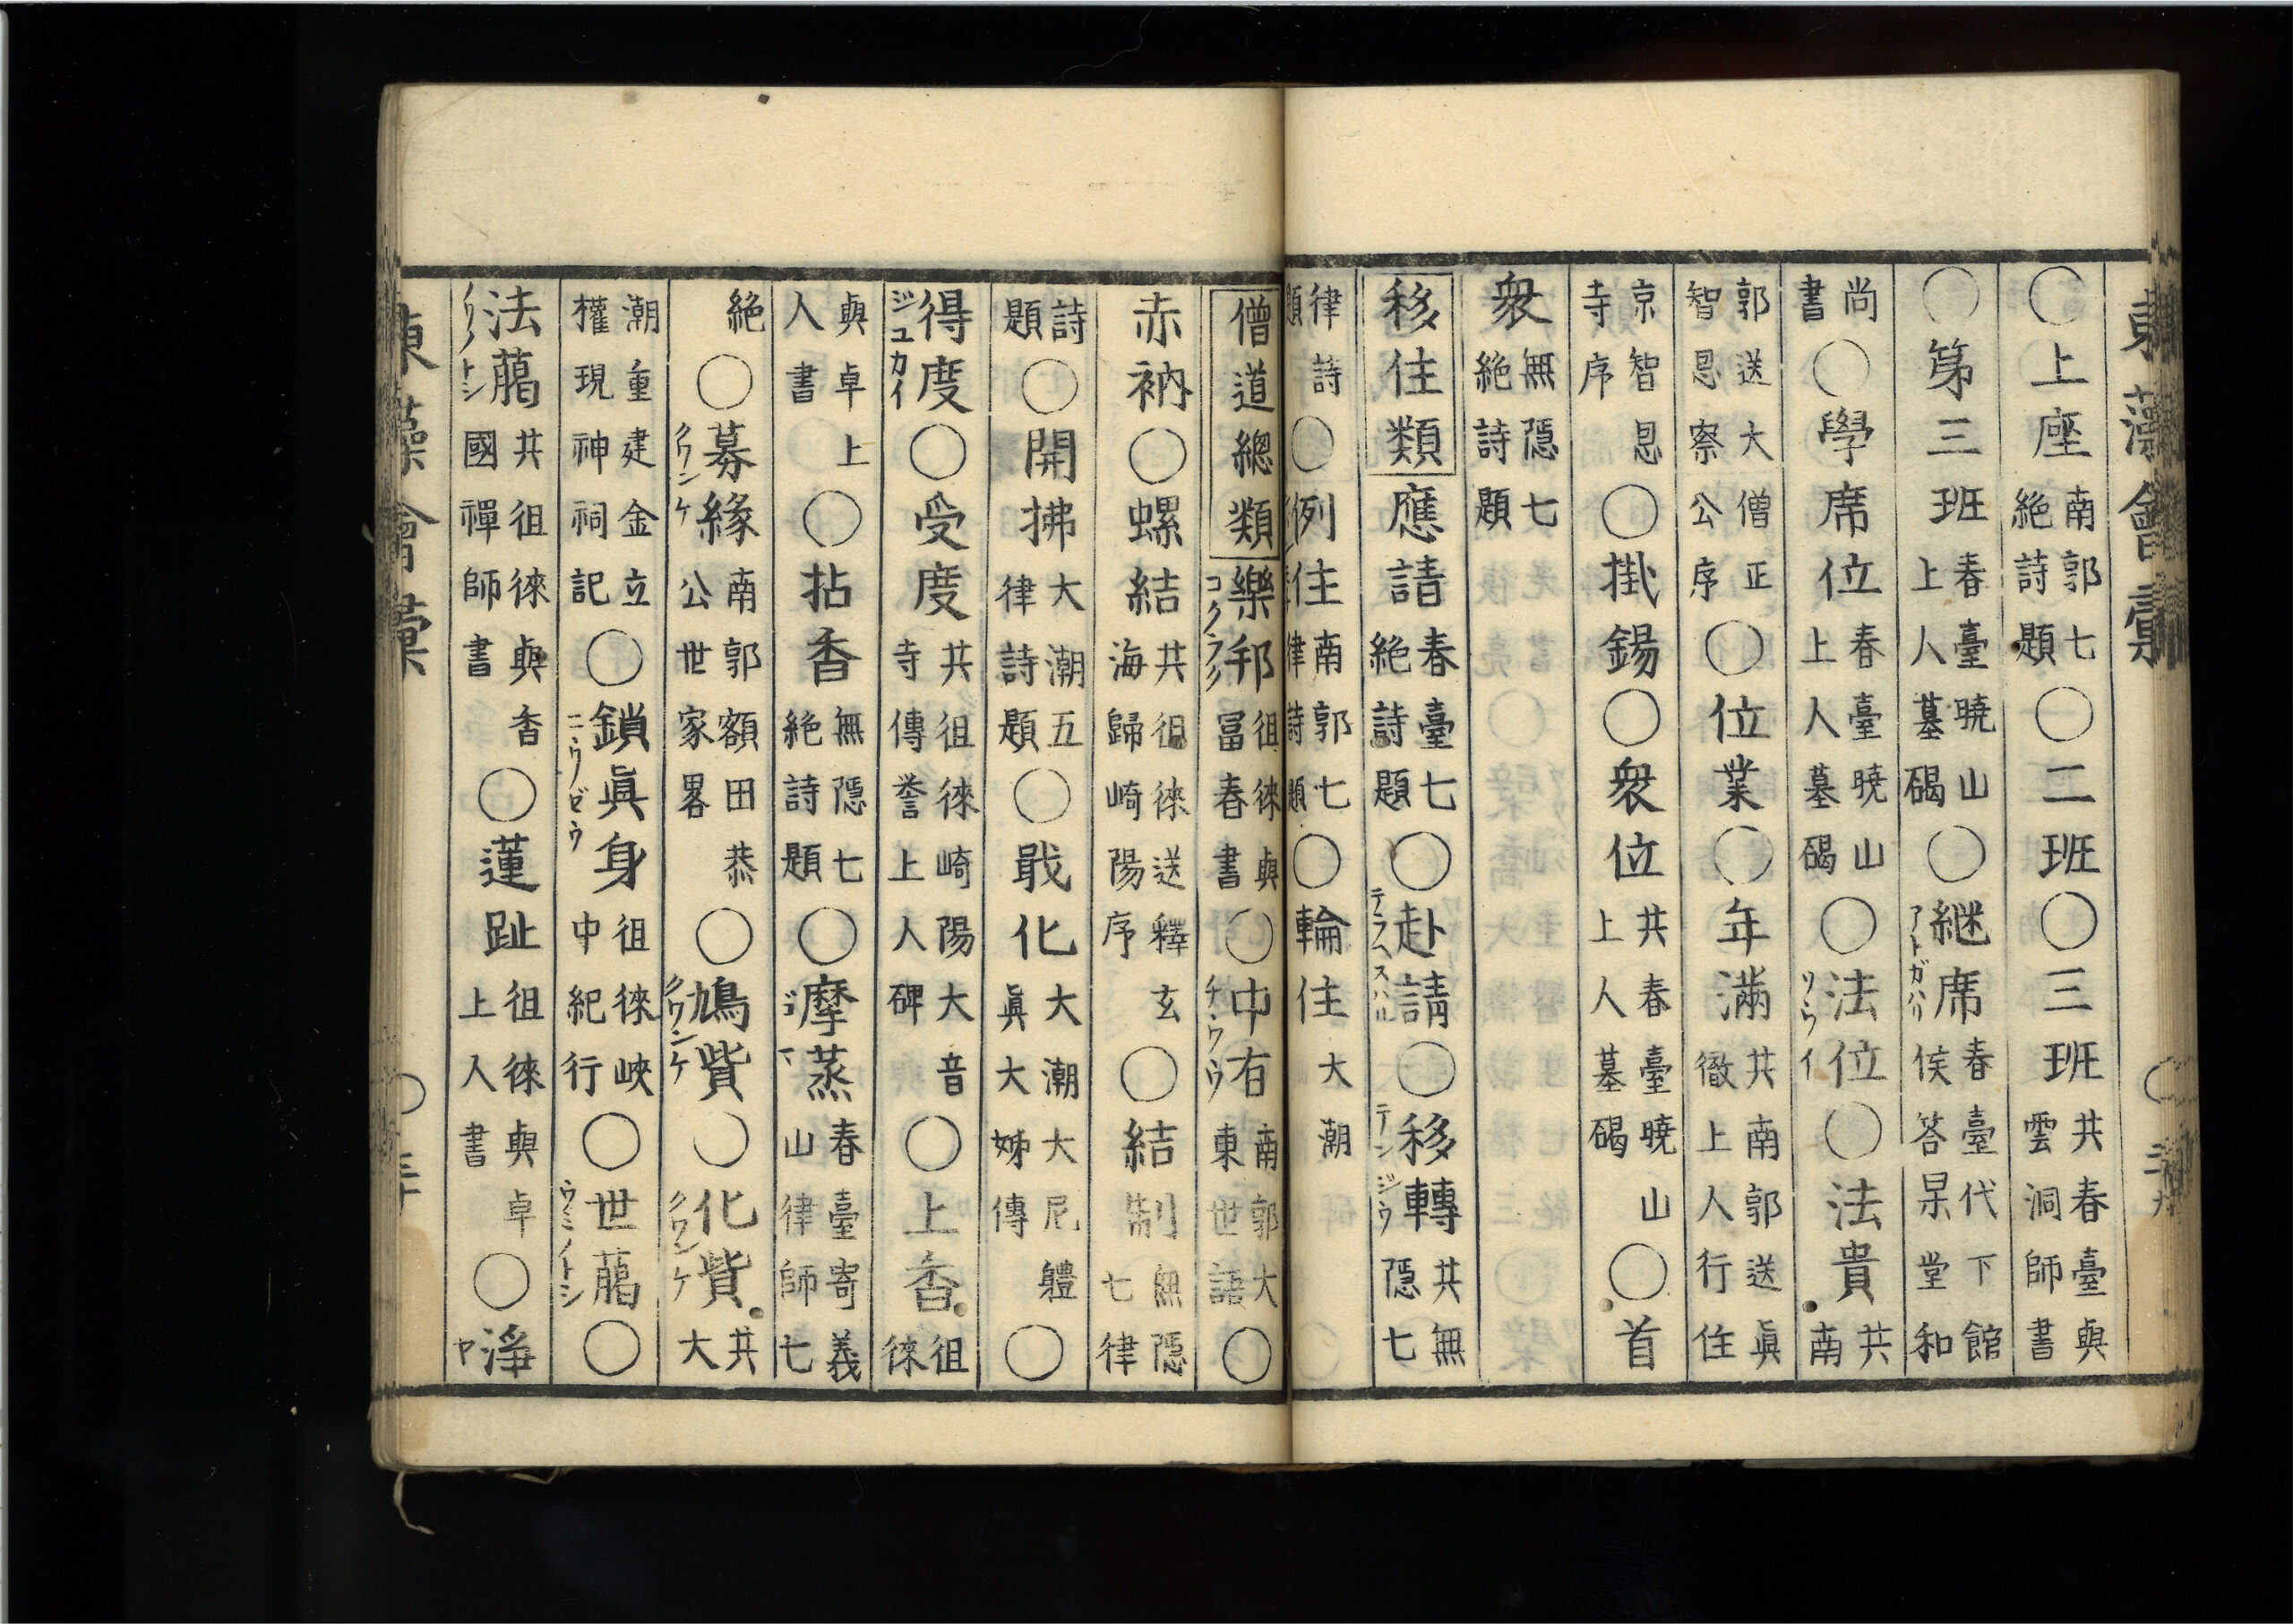 ○上座南郭七絶詩題○二班○三班共春臺與雲洞師書
○第三班春臺曉山上人墓碣○継席アトガハリ春臺代下館侯答杲堂和
尚書○學席位春臺曉山上人墓碣○法位ソウイ○法貴共南
郭送大僧正智恩察公序○位業○年滿共南郭送眞徹上人行住
京智恩寺序○掛錫○衆位共春臺曉山上人墓碣○首
衆無隱七絶詩題
移住類應請春臺七絶詩題○赴請テラヘスハル○移轉テンジウ共無隱七
律詩題○例住南郭七律詩題○輪住大潮
僧道總類樂邦コクラク徂徠與冨春書○中有チウウ南郭大東世語○
赤衲○螺結共徂徠送釋玄海歸崎陽序○結制無隱七律
詩題○開拂大潮五律詩題○戢化大潮大尼軆眞大姊傳○
得度ジユカイ○受度共徂徠崎陽大音寺傳誉上人碑○上香徂徠
與卓上人書○拈香無隱七絶詩題○摩蒸ゴマ春臺寄義山律師七
絶○募緣クワンケ南郭額田恭公世家畧○鳩貲クワンケ○化貲クワンケ共大
潮重建金立權現神祠記○鎖眞身ニウゼウ徂徠峽中紀行○世﨟ウミノトシ○
法﨟ノリノトシ共徂徠與香國禪師書○蓮趾徂徠與卓上人書○淨ヤ
東藻會彙